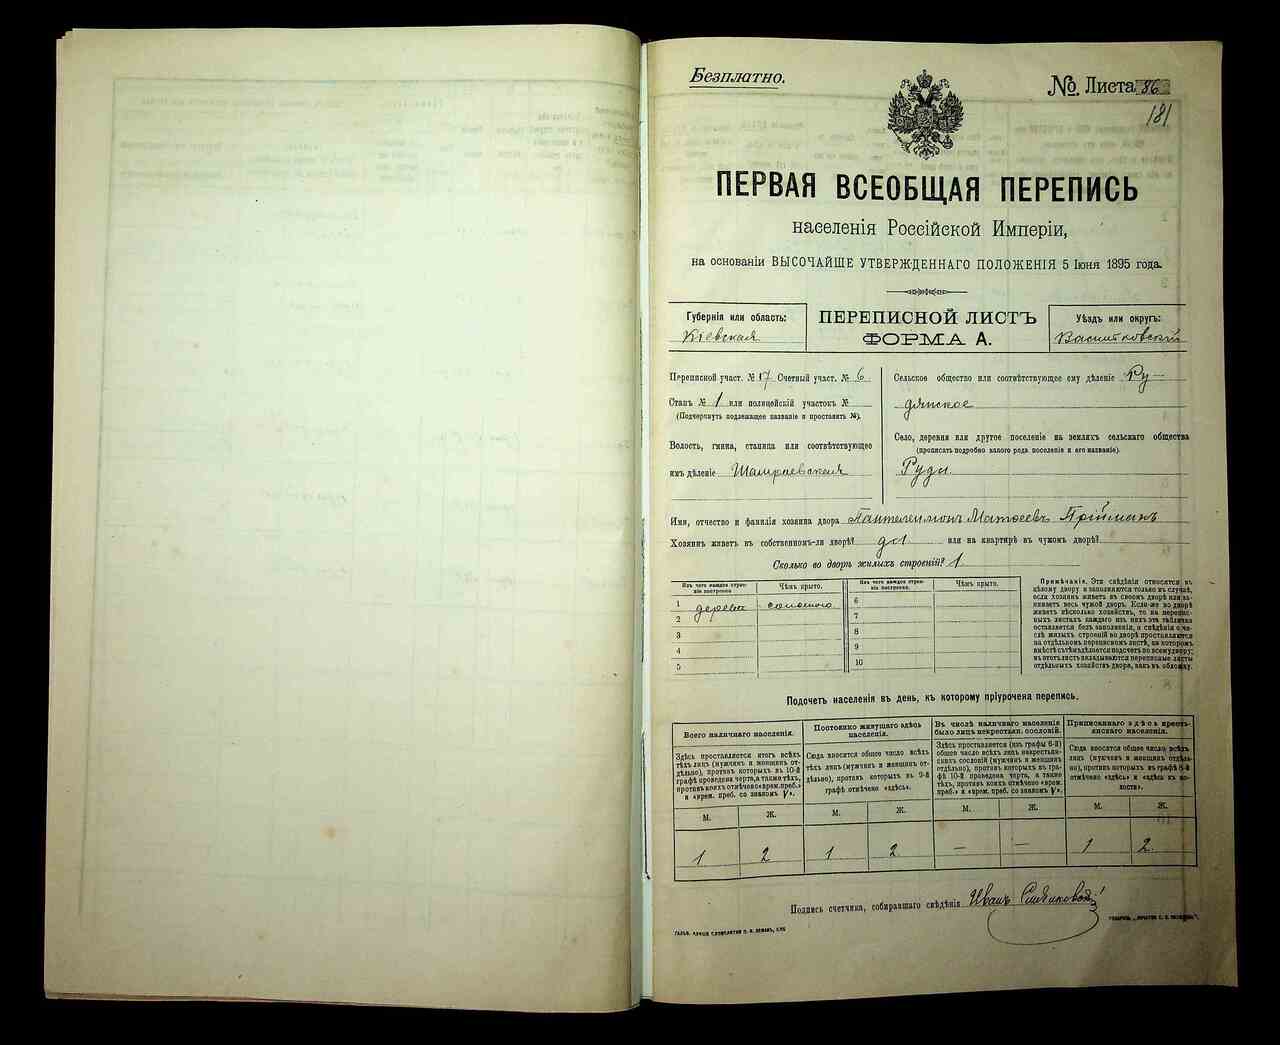 Безплатно.
№. Листа 86
181
ПЕРВАЯ ВСЕОБЩАЯ ПЕРЕПИСЬ
населенія Россійской Имперіи,
на основаніи ВЫСОЧАЙШЕ УТВЕРЖДЕННАГО ПОЛОЖЕНІЯ 5 Іюня 1895 года.
Губернія или область:
Кіевская
ПЕРЕПИСНОЙ ЛИСТЪ
ФОРМА А.
Уѣздъ или округъ:
Васильковскій
Переписной участ. № 17 Счетный участ. № 6
Станъ № 1 или полицейскій участокъ №
(Подчеркнуть подлежащее названіе и проставить №).
Волость, гмина, станица или соотвѣтствующее
имъ дѣленіе Шамраевская
Сельское общество или соотвѣтствующее ему дѣленіе Ру-
дянское
Село, деревня или другое поселеніе на земляхъ сельскаго общества
(прописать подробно какого рода поселеніе и его названіе).
Руды.
Имя, отчество и фамилія хозяина двора Пантелеимонъ Матвеевъ Прійманъ
Хозяинъ живетъ въ собственномъ-ли дворѣ? да или на квартирѣ въ чужомъ дворѣ?
Сколько во дворѣ жилыхъ строеній? 1
Изъ чего каждое строе-
ніе построено
Чѣмъ крыто.
Изъ чего каждое строе-
ніе построено.
Чѣмъ крыто.
1 дерева соломою
2
3
4
5
6
7
8
9
10
Примѣчанія. Эти свѣдѣнія относятся къ
цѣлому двору и заполняются только въ случаѣ,
если хозяинъ живетъ въ своемъ дворѣ или за-
нимаетъ весь чужой дворъ. Если-же во дворѣ
живетъ нѣсколько хозяйствъ, то на перепис-
ныхъ листахъ каждаго изъ нихъ эта табличка
оставляется безъ заполненія, а свѣдѣнія о чи-
слѣ жилыхъ строеній во дворѣ проставляются
на отдѣльномъ переписномъ листѣ, на которомъ
вмѣстѣ съ тѣмъ дѣлается подсчетъ по всему двору;
въ этотъ листъ вкладываются переписные листы
отдѣльныхъ хозяйствъ двора, какъ въ обложку.
Подсчетъ населенія въ день, къ которому пріурочена перепись.
Всего наличнаго населенія.
Здѣсь проставляется итогъ всѣхъ
тѣхъ лицъ (мужчинъ и женщинъ от-
дѣльно), противъ которыхъ въ 10-й
графѣ проведена черта, а также тѣхъ,
противъ коихъ отмѣчено «врем. преб.»
и «врем. преб. со знакомъ V».
Постоянно живущаго здѣсь
населенія.
Сюда вносится общее число всѣхъ
тѣхъ лицъ (мужчинъ и женщинъ от-
дѣльно), противъ которыхъ въ 9-й
графѣ отмѣчено «здѣсь».
Въ числѣ наличнаго населенія
было лицъ некрестьян. сословій.
Здѣсь проставляется (изъ графы 6-й)
общее число лицъ некрестьян-
скихъ сословій (мужчинъ и женщинъ
отдѣльно), противъ которыхъ въ гра-
фѣ 10-й проведена черта, а также
тѣхъ, противъ коихъ отмѣчено «врем.
преб.» и «врем. преб. со знакомъ V».
Приписаннаго здѣсь кресть-
янскаго населенія.
Сюда вносится общее число всѣхъ
лицъ (мужчинъ и женщинъ отдѣль-
но), противъ которыхъ въ графѣ 8-й
отмѣчено «здѣсь» и «здѣсь къ во-
лости».
М. Ж. М. Ж. М. Ж. М. Ж.
1 2 1 2 — — 1 2.
Подпись счетчика, собиравшаго свѣдѣнія Иванъ